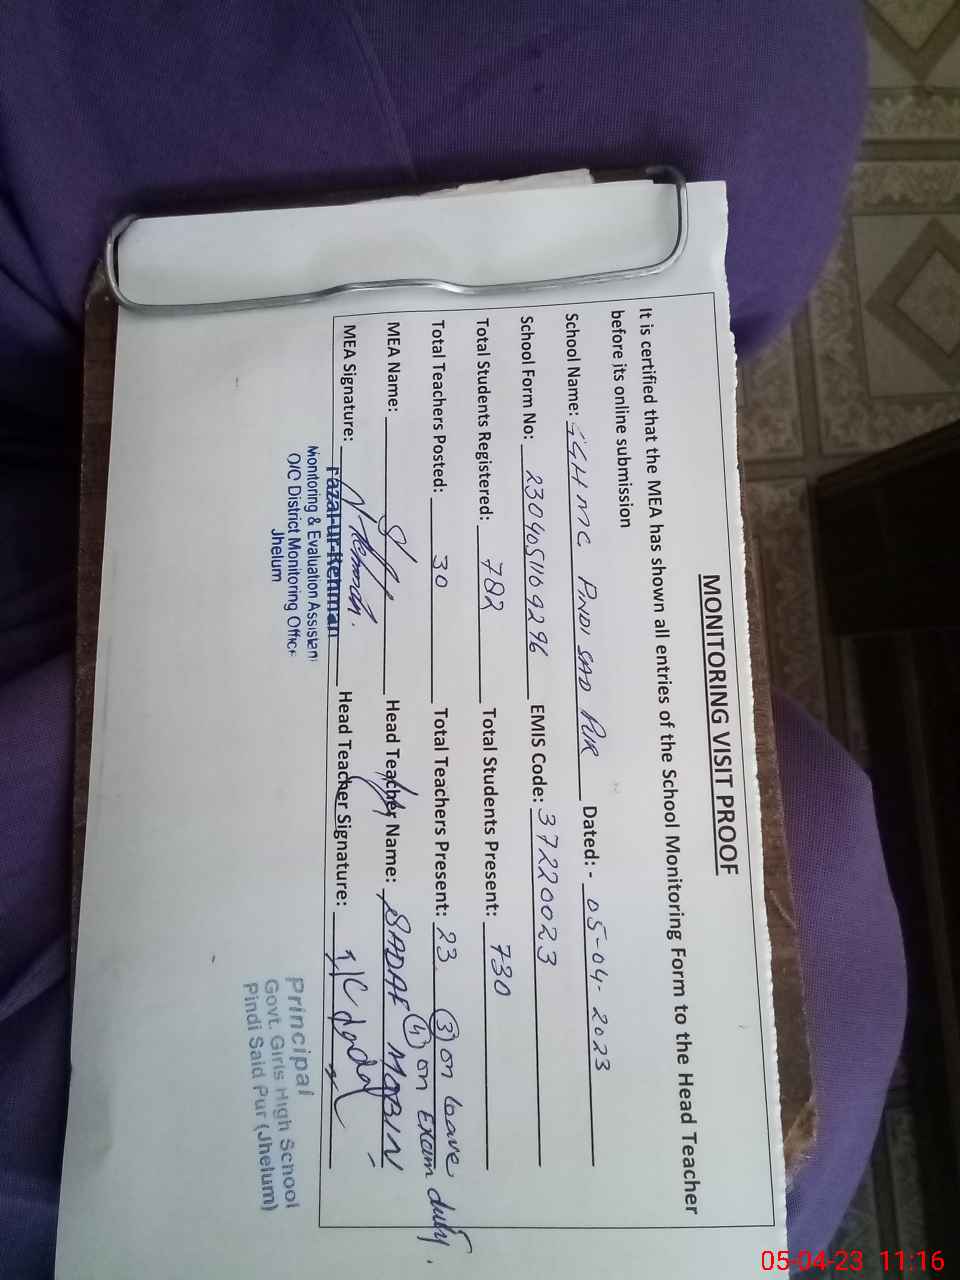 MONITORING VISIT PROOF
It is certified that the MEA has shown all entries of the School Monitoring Form to the Head Teacher
before its online submission
School Name: GGH MC PINDI SAID PUR Dated: - 05-04-2023
School Form No: 2304051109296 EMIS Code: 37220023
Total Students Registered: 782 Total Students Present: 730
Total Teachers Posted: 30 Total Teachers Present: 23 (3) on leave
(4) on Exam duty.
MEA Name: Head Teacher Name: SADAF MOBIN
MEA Signature: Head Teacher Signature: I/C
Fazal-ur-Rehman
Monitoring & Evaluation Assistan
O/C District Monitoring Office
Jhelum
Principal
Govt. Girls High School
Pindi Said Pur (Jhelum)
05-04-23 11:16